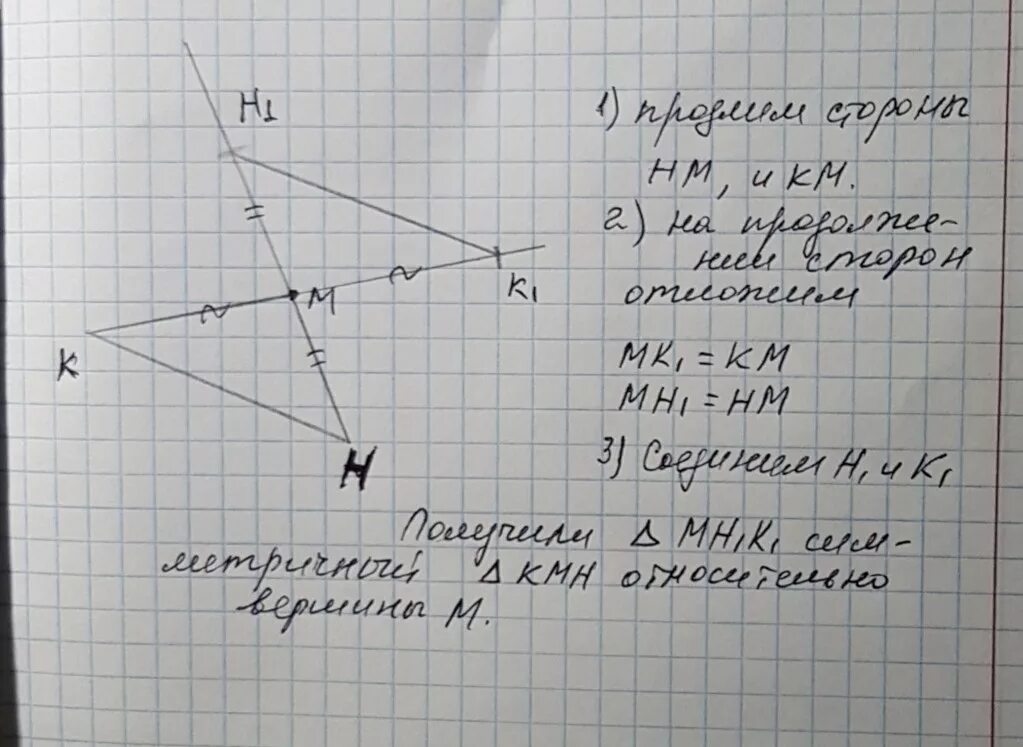 H1
M
K1
K
H
1) продлим стороны
HM, и KM.
2) на продолже-
нии сторон
отложим
MK1 = KM
MH1 = HM
3) Соединим H1 и K1
Получили Δ MH1K1 сим-
метричный Δ KMH относительно
вершины M.